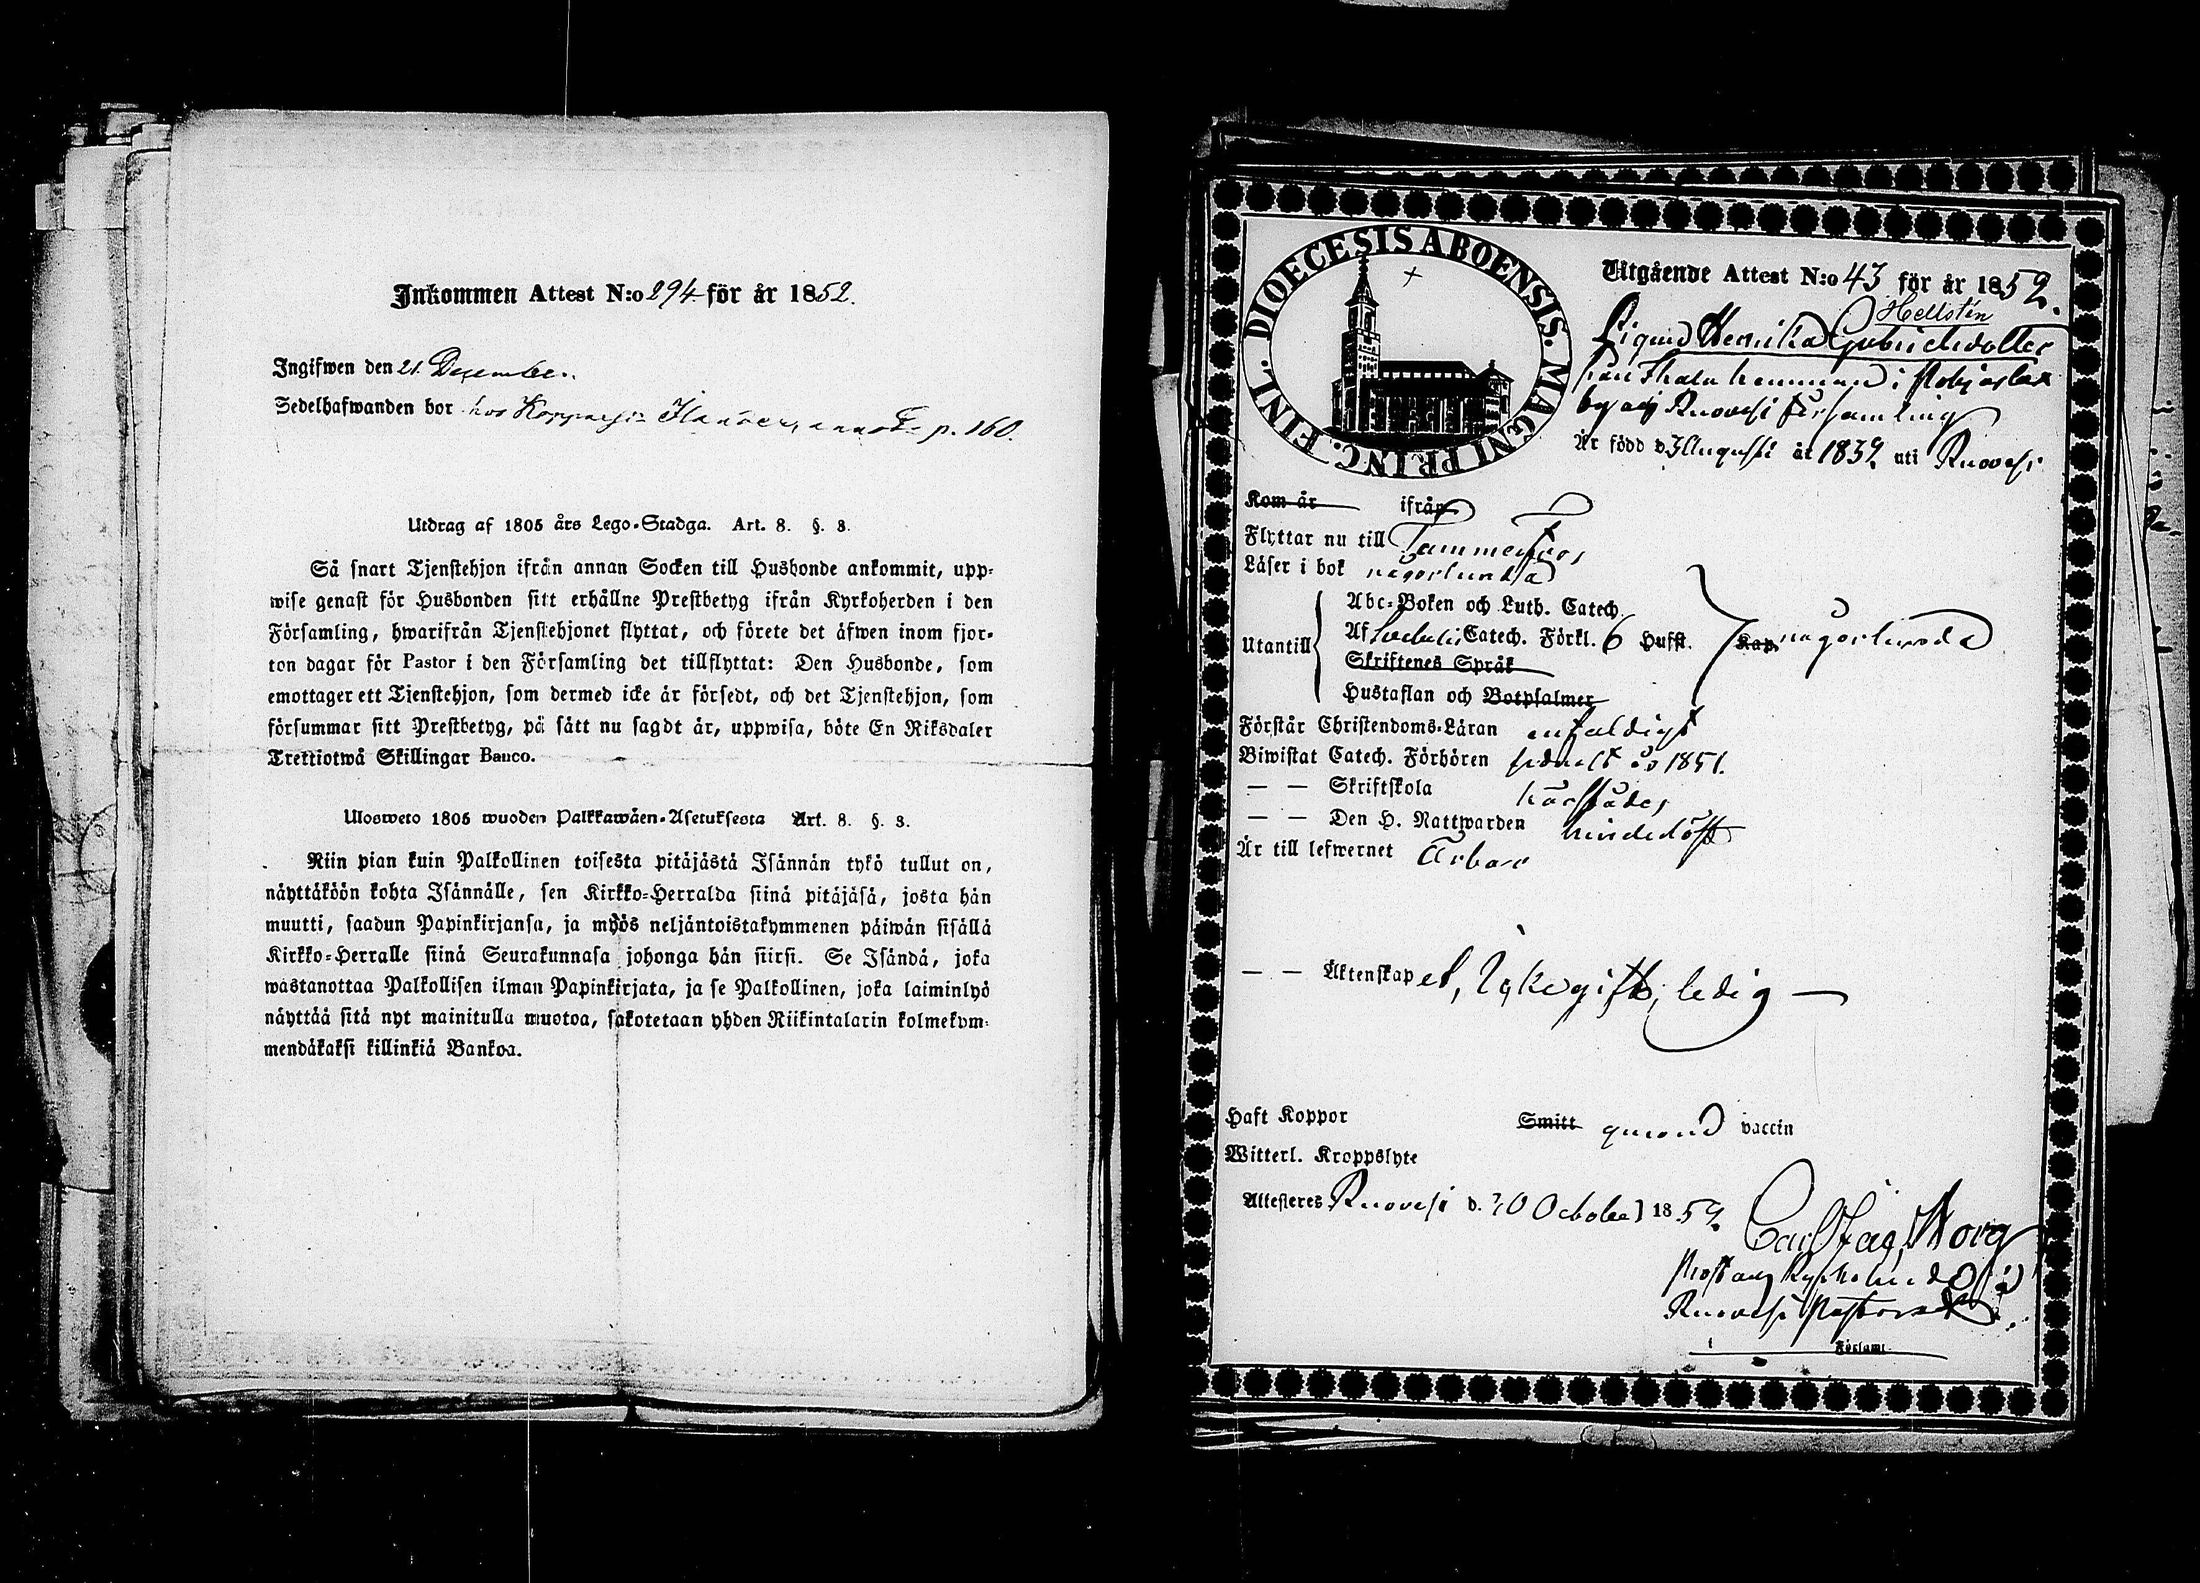 Inkommen Attest N:o 294 för år 1852.
Ingifwen den 21 December.
Sedelhafwanden bor hos p. 160.
Utdrag af 1805 års Lego-Stadga. Art. 8. §. 8.
Så snart Tjenstehjon ifrån annan Socken till Husbonde ankommit, upp-
wise genast för Husbonden sitt erhållne Prestbetyg ifrån Kyrkoherden i den
Församling, hwarifrån Tjenstehjonet flyttat, och förete det äfwen inom fjor-
ton dagar för Pastor i den Församling det tillflyttat: Den Husbonde, som
emottager ett Tjenstehjon, som dermed icke är försedt, och det Tjenstehjon, som
försummar sitt Prestbetyg, på sätt nu sagdt är, uppwisa, böte En Riksdaler
Trettiotwå Skillingar Banco.
Ulosweto 1805 wuoden Palkkawäen-Asetuksesta Art. 8. §. 8.
Niin pian kuin Palkollinen toisesta pitäjästä Isännän tykö tullut on,
näyttäköön kohta Isännälle, sen Kirkko-Herralda siinä pitäjäsä, josta hän
muutti, saadun Papinkirjansa, ja myös neljäntoistakymmenen päiwän sisällä
Kirkko-Herralle siinä Seurakunnasa johonga hän siirsi. Se Isändä, joka
wastanottaa Palkollisen ilman Papinkirjata, ja se Palkollinen, joka laiminlyö
näyttää sitä nyt mainitulla muotoa, sakotetaan yhden Riikintalarin kolmekym-
mendäkaksi killinkiä Bankoa.
DIOECESIS ABOENSIS. MAGNI PRINC. FINL.
Utgående Attest N:o 43 för år 1852.
Hellstén
Pigund Henrika Gabrielsdotter
från hemman i
by af Ruovesi församling
Är född d. 3 Augusti år 1832 uti Ruovesi
Kom år ifrån
Flyttar nu till Tammerfors
Läser i bok någorlunda
Abc-Boken och Luth. Catech.
Utantill Af Catech. Förkl. 6 Hufst. Kap. någorlunda
Skriftenes Språk
Hustaflan och Botpsalmer
Förstår Christendoms-Läran enfaldigt
Biwistat Catech. Förhören sednast år 1851.
— — Skriftskola
— — Den H. Nattwarden
Är till lefwernet Ärbar
— — Äktenskapet, ledig —
Haft Koppor Smitt genom vaccin
Witterl. Kroppslyte
Attesteres Ruovesi d. 30 October 1852.
Carl Norg
Prost och Kyrkoherde
Ruovesi Pastorat
i Församl.